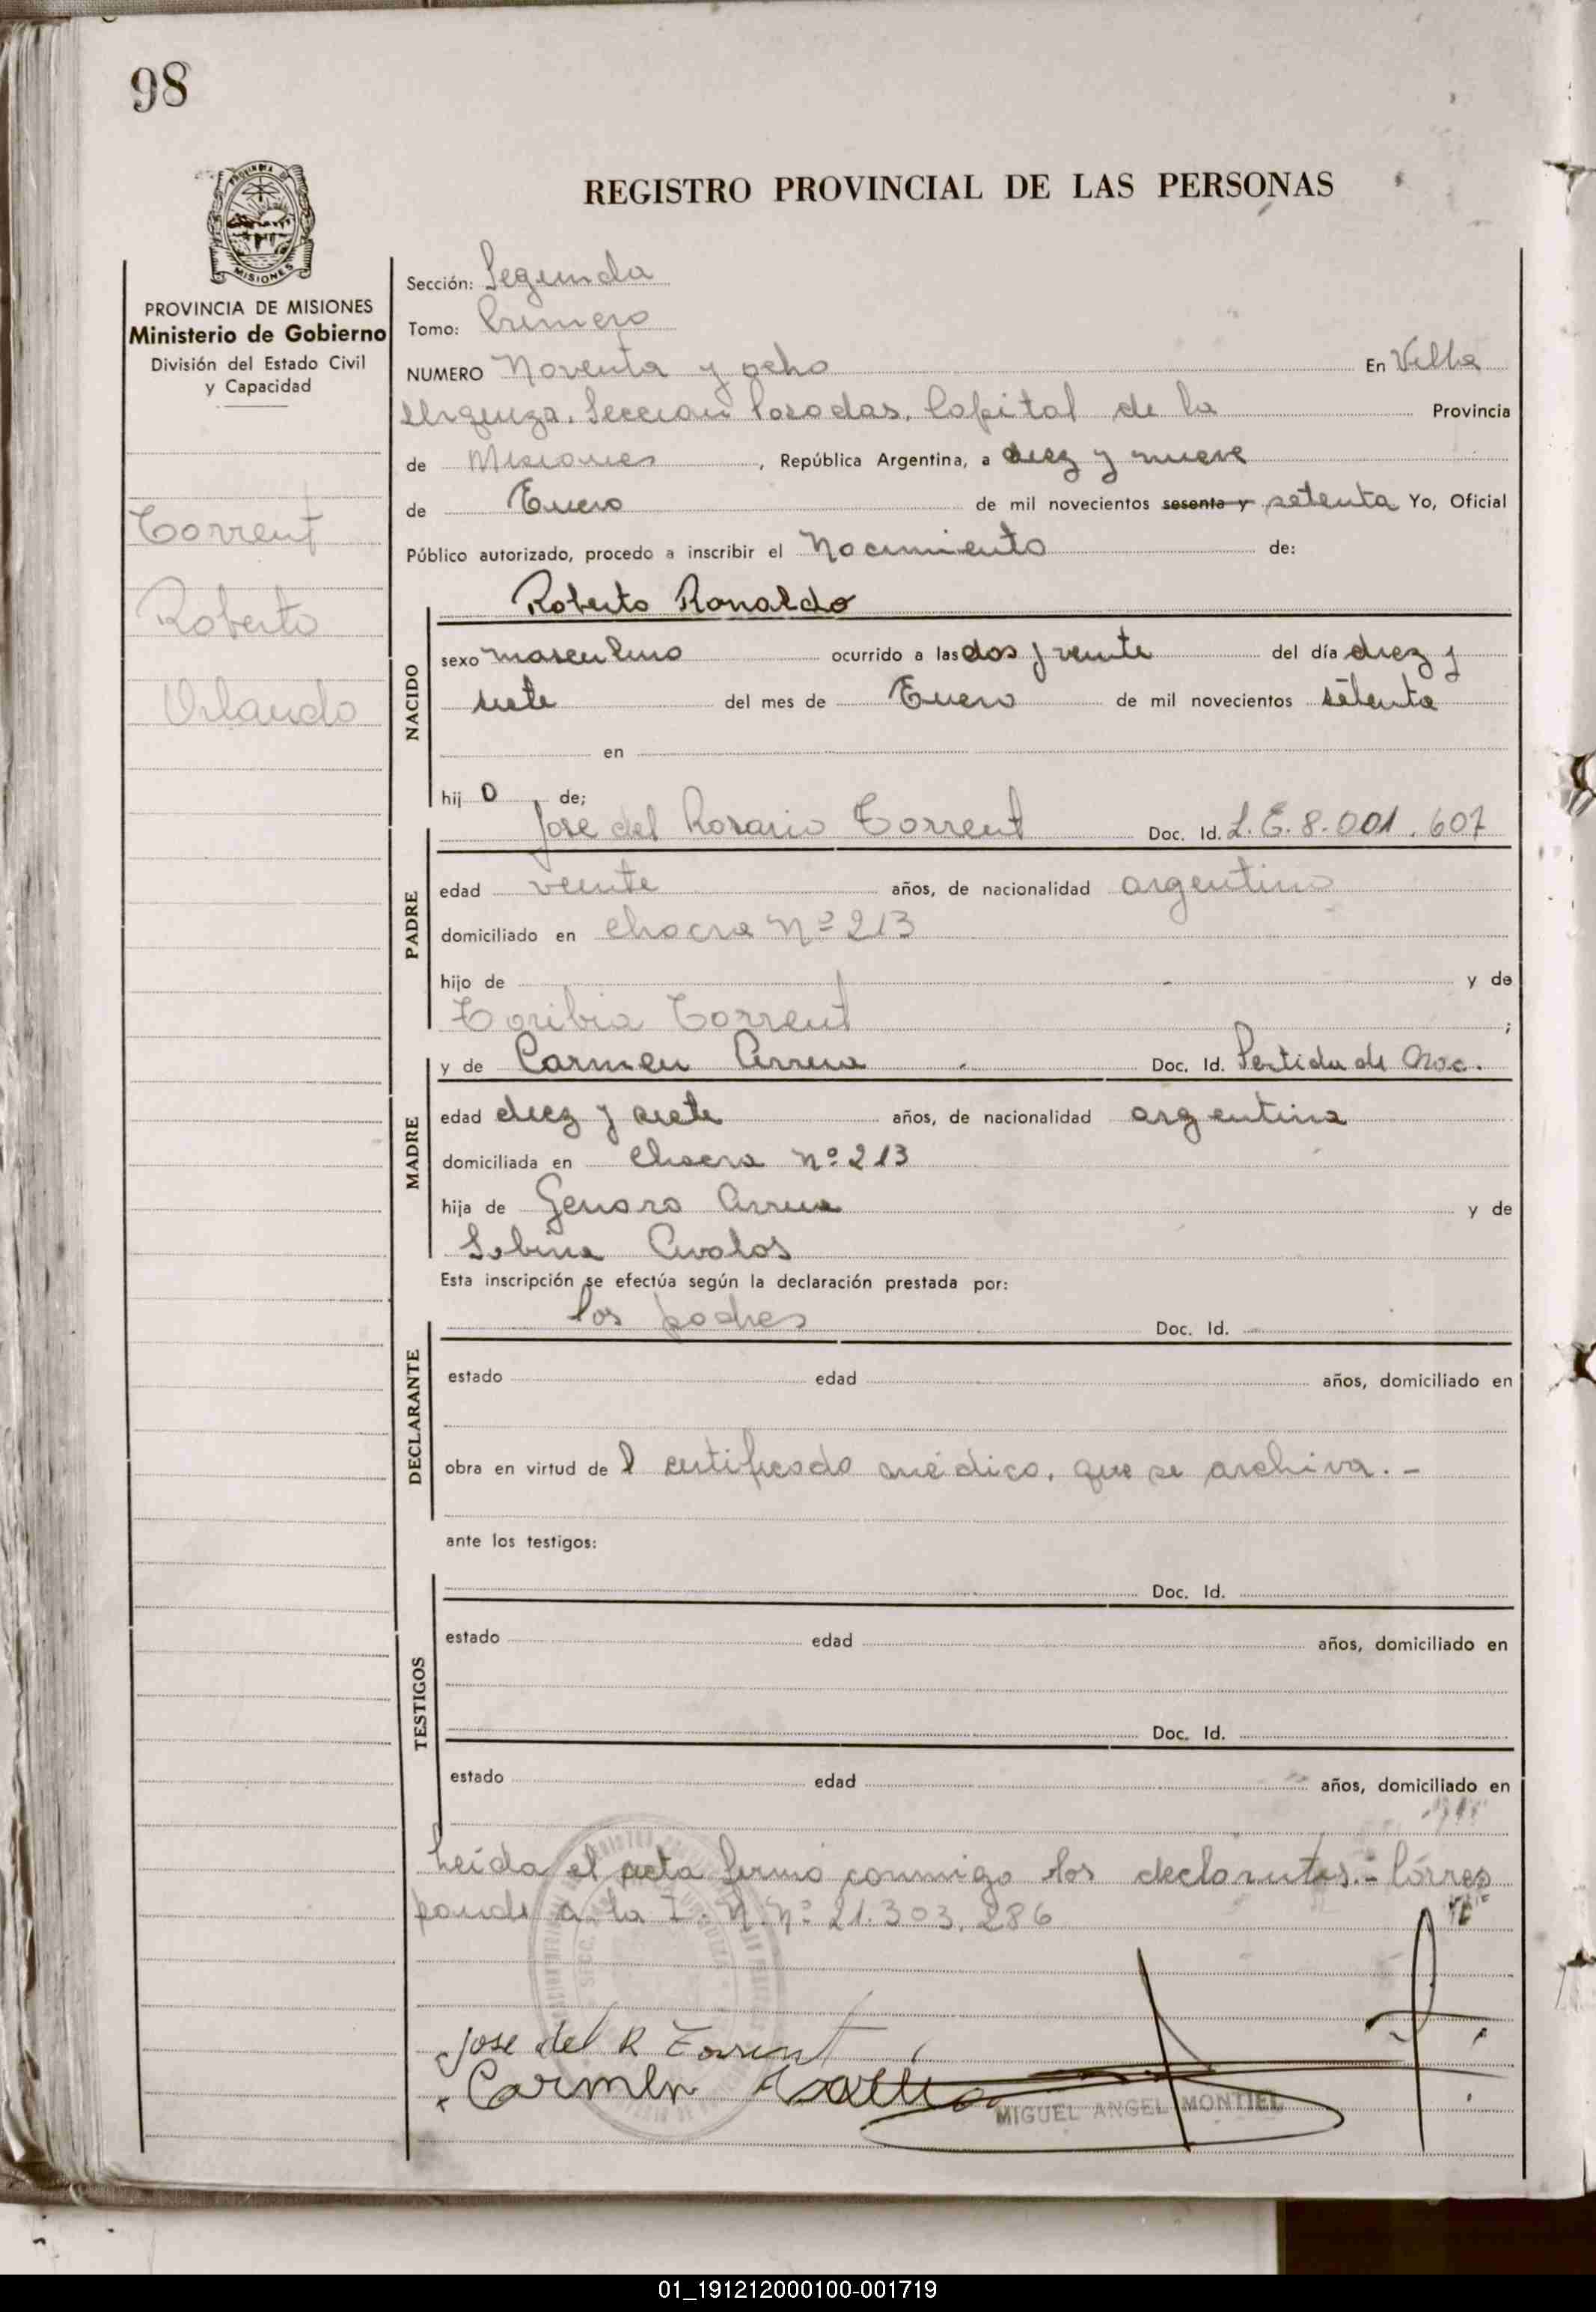 98
PROVINCIA DE
MISIONES
PROVINCIA DE MISIONES
Ministerio de Gobierno
División del Estado Civil
y Capacidad
Torrent
Roberto
Orlando
REGISTRO PROVINCIAL DE LAS PERSONAS
Sección: Segunda
Tomo: Primero
NUMERO Noventa y ocho En Villa
Urquiza, Seccion Posadas, Capital de la Provincia
de Misiones, República Argentina, a diez y nueve
de Enero de mil novecientos sesenta y setenta Yo, Oficial
Público autorizado, procedo a inscribir el Nacimiento de:
Roberto Ronaldo
NACIDO
sexo masculino ocurrido a las dos y veinte del día diez y
siete del mes de Enero de mil novecientos setenta
en
hij o de;
Jose del Rosario Torrent Doc. Id. L.E. 8.001.607
PADRE
edad veinte años, de nacionalidad argentino
domiciliado en chacra Nº 213
hijo de y de
Toribia Torrent ;
y de Carmen Arrua Doc. Id. Partida de Nac.
MADRE
edad diez y siete años, de nacionalidad argentina
domiciliada en chacra nº 213
hija de Genaro Arrua y de
Sabina Avalos
Esta inscripción se efectúa según la declaración prestada por:
los padres Doc. Id.
DECLARANTE
estado edad años, domiciliado en
obra en virtud de l certificado médico, que se archiva. -
ante los testigos:
Doc. Id.
TESTIGOS
estado edad años, domiciliado en
Doc. Id.
estado edad años, domiciliado en
Leída el acta firmó conmigo los declarantes.- Corres
ponde a la I. N. Nº 21.303.286
Jose del R Torrent
Carmen
MIGUEL ANGEL MONTIEL
01_191212000100-001719